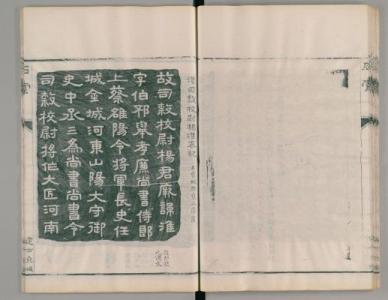 漢司隸校尉楊淮表記
故司隸校尉楊君厥諱淮
字伯邳舉孝廉尚書侍郎
上蔡雒陽令將軍長史任
城金城河東山陽大守御
史中丞三為尚書尚書令
司隸校尉將作大匠河南